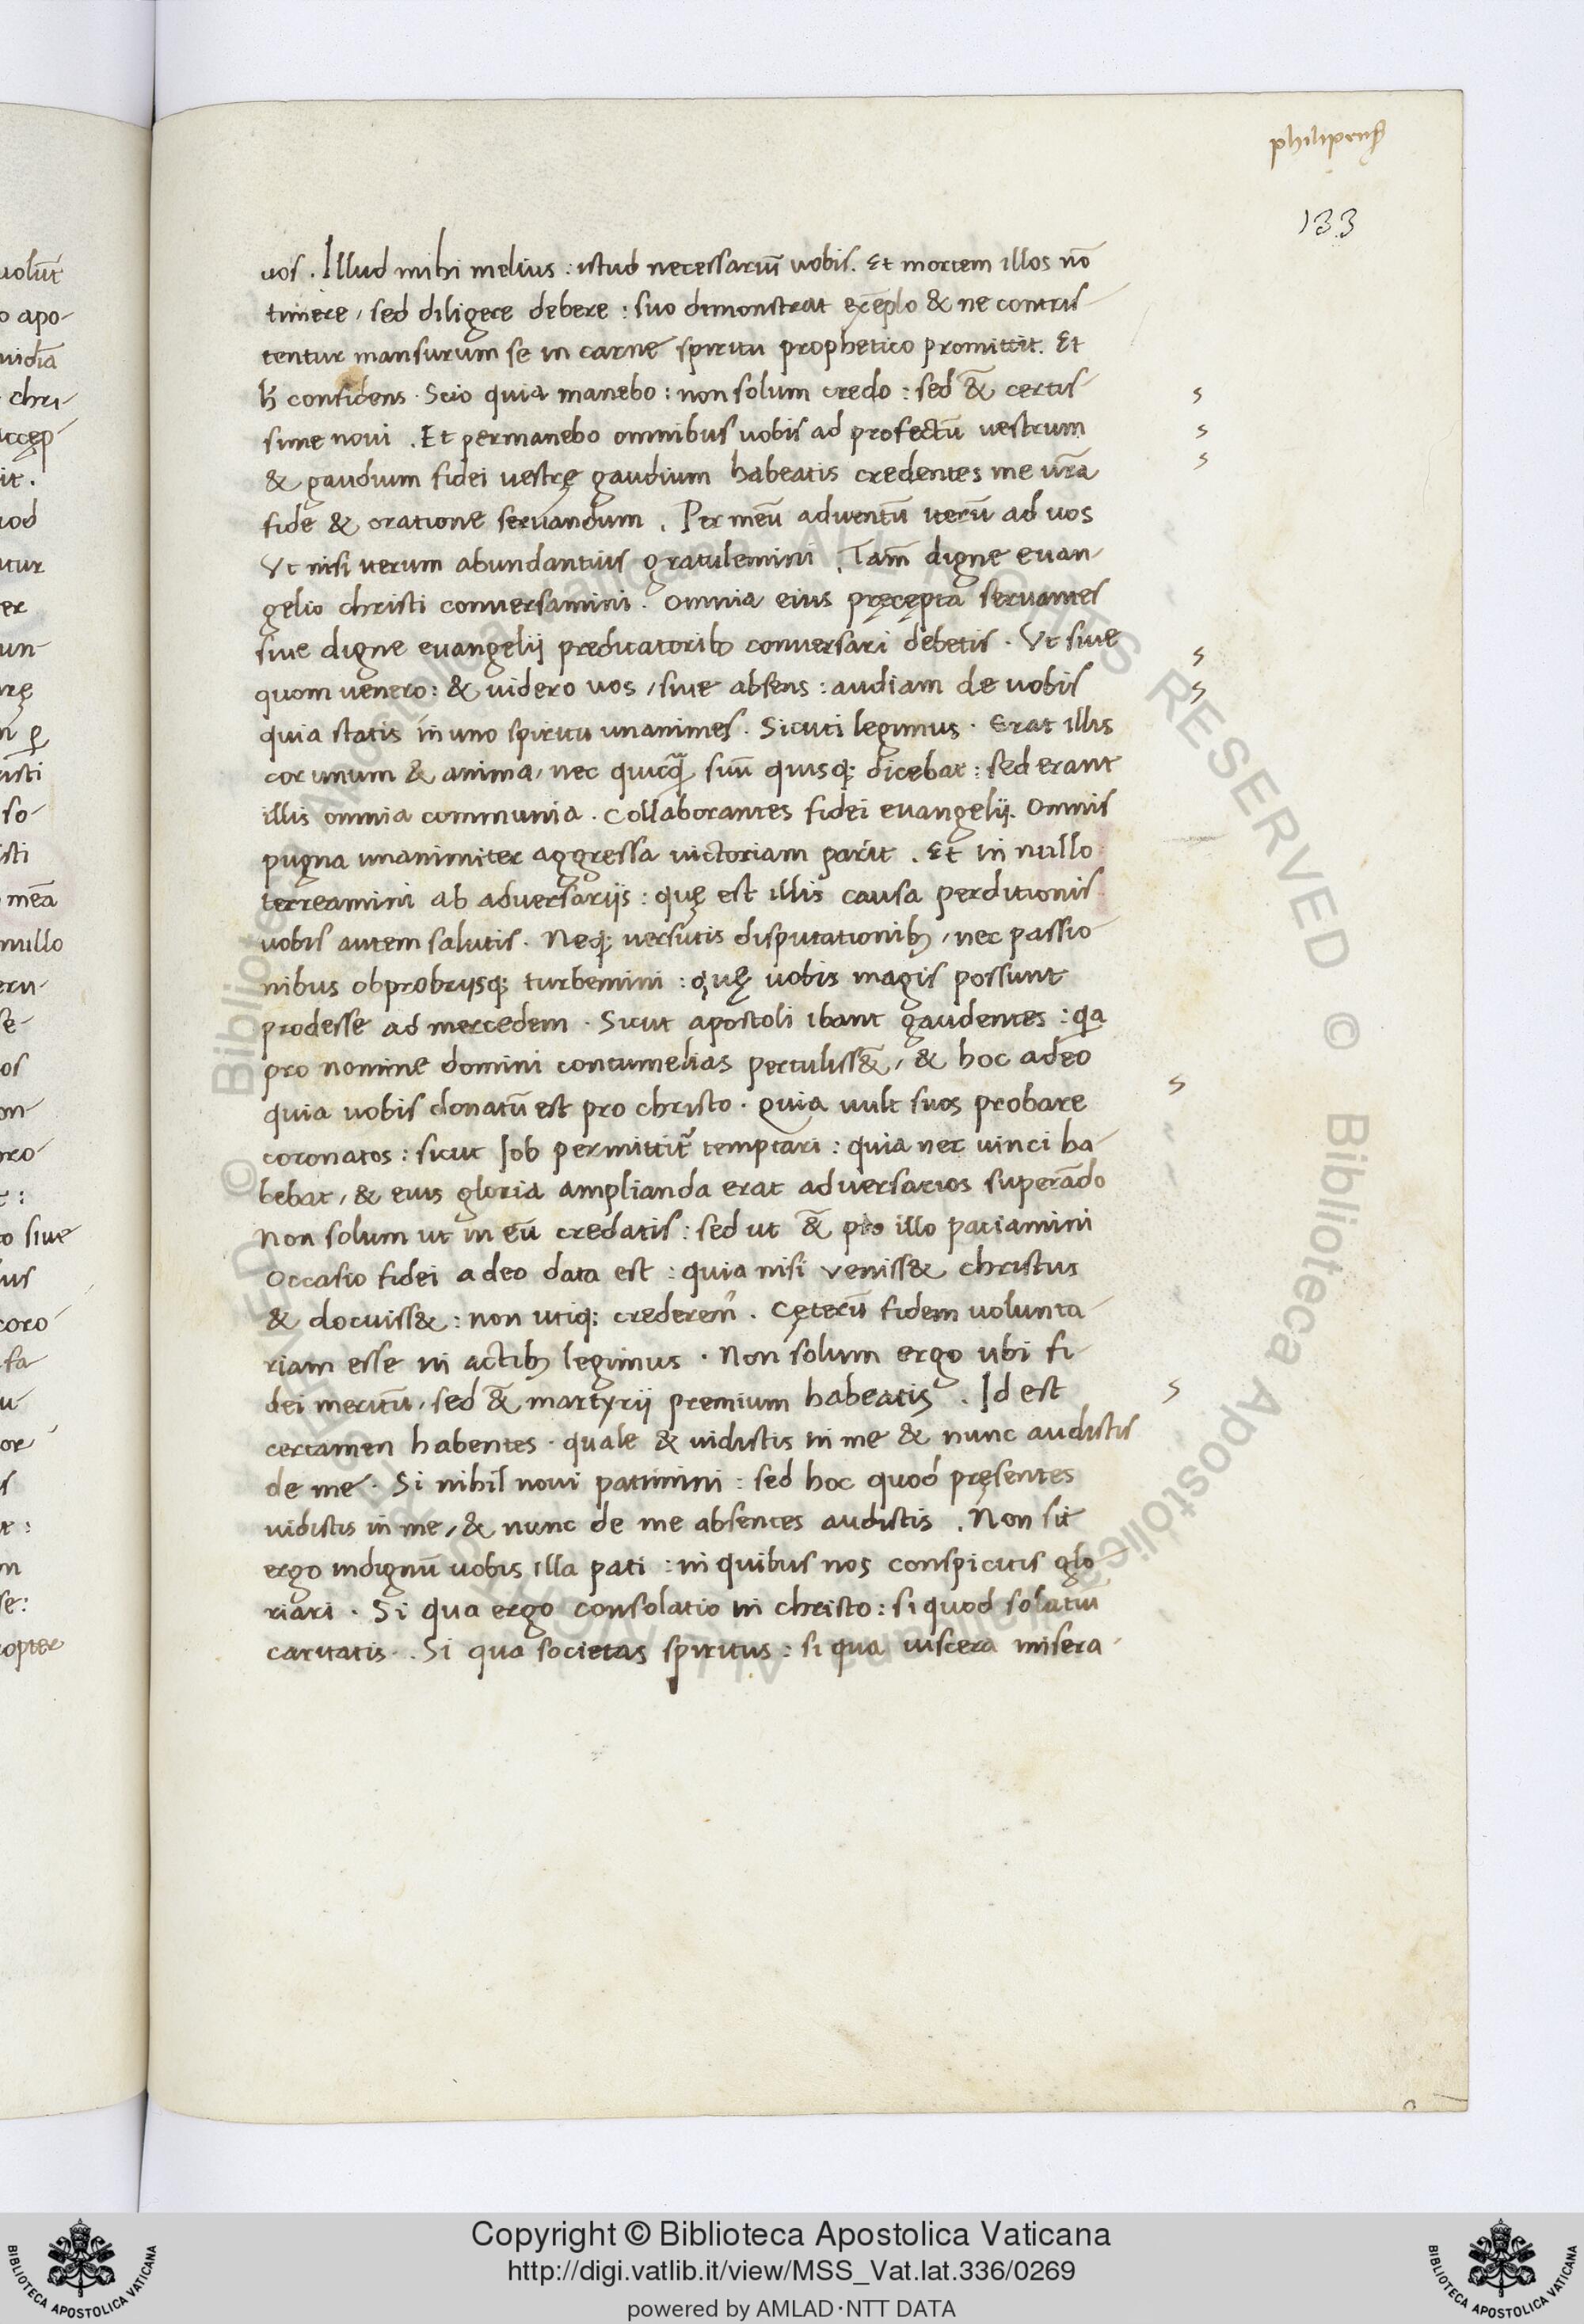 philipens̃
133
uos. Illud mihi melius: istud necessariū uobis. Et mortem illos nō
timere, sed diligere debere: suo demonstrat exẽplo & ne contris-
tentur mansurum se in carne spiritu prophetico promittit. Et
h̄ confidens. Scio quia manebo: non solum credo: sed &̃ certis-
sime noui. Et permanebo omnibus uobis ad profectū uestrum
& gaudium fidei uestrę gaudium habeatis credentes me ur̃a
fide & oratione seruandum. Per meū aduentū iterū ad uos
Vt nisi uerum abundantius gratulemini. Tam̃ digne euan-
gelio christi conuersamini. Omnia eius pręcępta seruantes
siue digne euangelij predicatorib; conuersari debetis. Vt siue
quom uenero: & uidero uos, siue absens: audiam de uobis
quia statis in uno spiritu unanimes. Sicuti legimus. Erat illis
cor unum & anima, nec quicq̃ suū quisq; dicebat: sed erant
illis omnia communia. Collaborantes fidei euangelij. Omnis
pugna unanimiter aggressa uictoriam parit. Et in nullo
terreamini ab aduersariis: quę est illis causa perditionis
uobis autem salutis. Neq; uersutis disputationib;, nec passio-
nibus obprobriisq; turbemini: quę uobis magis possunt
prodesse ad mercedem. Sicut apostoli ibant gaudentes: qa
pro nomine domini contumelias pertuliss&̃, & hoc a deo
quia uobis donatū est pro christo. Quia uult suos probare
coronatos: sicut Iob permittit᷑ temptari: quia nec uinci ha-
bebat, & eius gloria amplianda erat aduersarios superādo
Non solum ut in eū credatis: sed ut &̃ pro illo patiamini
Occasio fidei a deo data est: quia nisi veniss& christus
& docuiss&: non utiq; crederem̃. Cęterū fidem uolunta-
riam esse in actib; legimus. Non solum ergo ubi fi-
dei meritū, sed &̃ martyrij premium habeatis. Id est
certamen habentes. quale & uidistis in me & nunc audistis
de me. Si nihil noui patimini: sed hoc quod pręsentes
uidistis in me, & nunc de me absentes audistis. Non sit
ergo indignū uobis illa pati: in quibus nos conspicitis glo-
riari. Si qua ergo consolatio in christo: si quod solatiū
caritatis. Si qua societas spiritus: si qua uiscera misera-
Copyright © Biblioteca Apostolica Vaticana
http://digi.vatlib.it/view/MSS_Vat.lat.336/0269
powered by AMLAD·NTT DATA